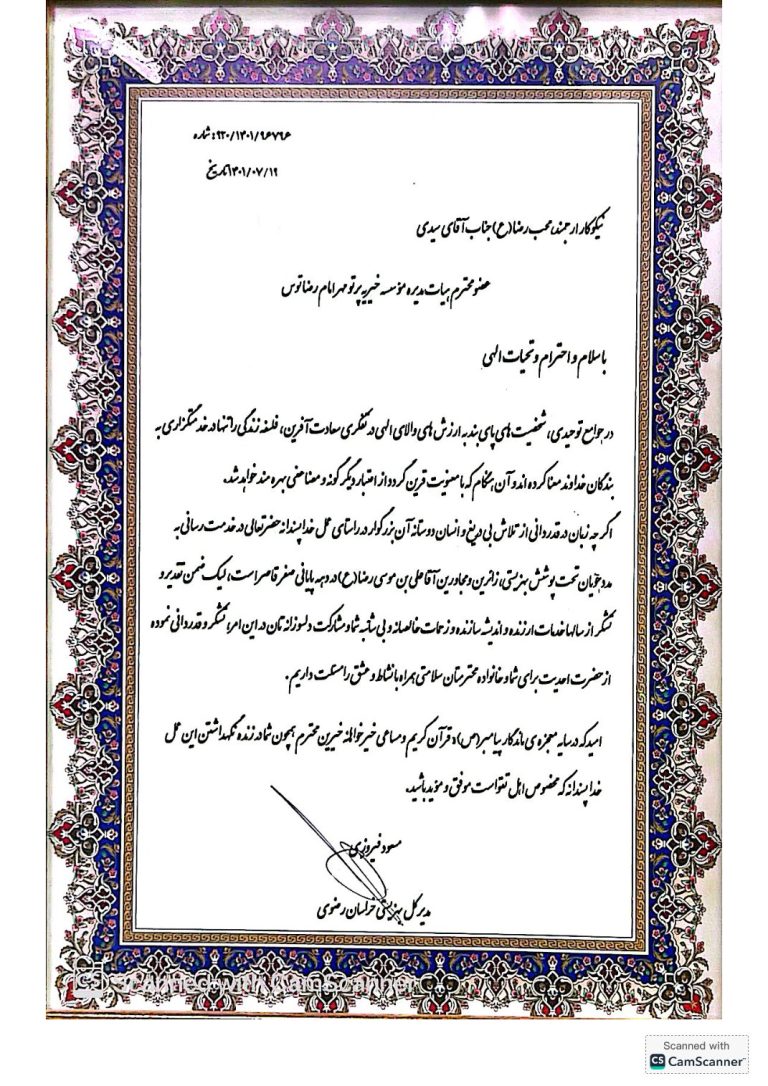 شماره: ۹۲۰/۱۴۰۱/۹۶۷۷۶
تاریخ ۱۴۰۱/۰۷/۱۹
نیکوکار ارجمند، محب رضا(ع) جناب آقای سیدی
عضو محترم هیات مدیره مؤسسه خیریه پرتو مهر امام رضا توس
با سلام و احترام و تحیات الهی
در جوامع توحیدی، شخصیت های پای بند به ارزش های والای الهی در تفکری سعادت آفرین، فلسفه زندگی را تنها در خدمتگزاری به
بندگان خداوند معنا کرده اند و آن هنگام که با معنویت قرین گردد از اعتبار دیگر گونه و معنا بهره مند خواهد شد.
اگر چه زبان در قدردانی از تلاش بی دریغ و انسان دوستانه آن بزرگوار در راستای عمل خداپسندانه حضرتعالی در خدمت رسانی به
مددجویان تحت پوشش بهزیستی، زائرین و مجاورین آقا علی بن موسی رضا(ع) در دهه پایانی صفر قاصر است، لیک ضمن تقدیر و
تشکر از سالها خدمات ارزنده و اندیشه سازنده و زحمات خالصانه و بی شائبه شما و مشارکت دلسوزانه تان در این امر، تشکر و قدردانی نموده
از حضرت احدیت برای شما و خانواده محترمتان سلامتی همراه با نشاط و عشق را مسئلت داریم.
امید که در سایه معجزه ی ماندگار پیامبر(ص)، قرآن کریم و مساعی خیرخواهانه خیرین محترم همچون شما در زنده نگهداشتن این عمل
خداپسندانه که مخصوص اهل تقواست موفق و مؤید باشید.
مسعود فیروزی
مدیر کل بهزیستی خراسان رضوی
Scanned with CamScanner
Scanned with
CS CamScanner